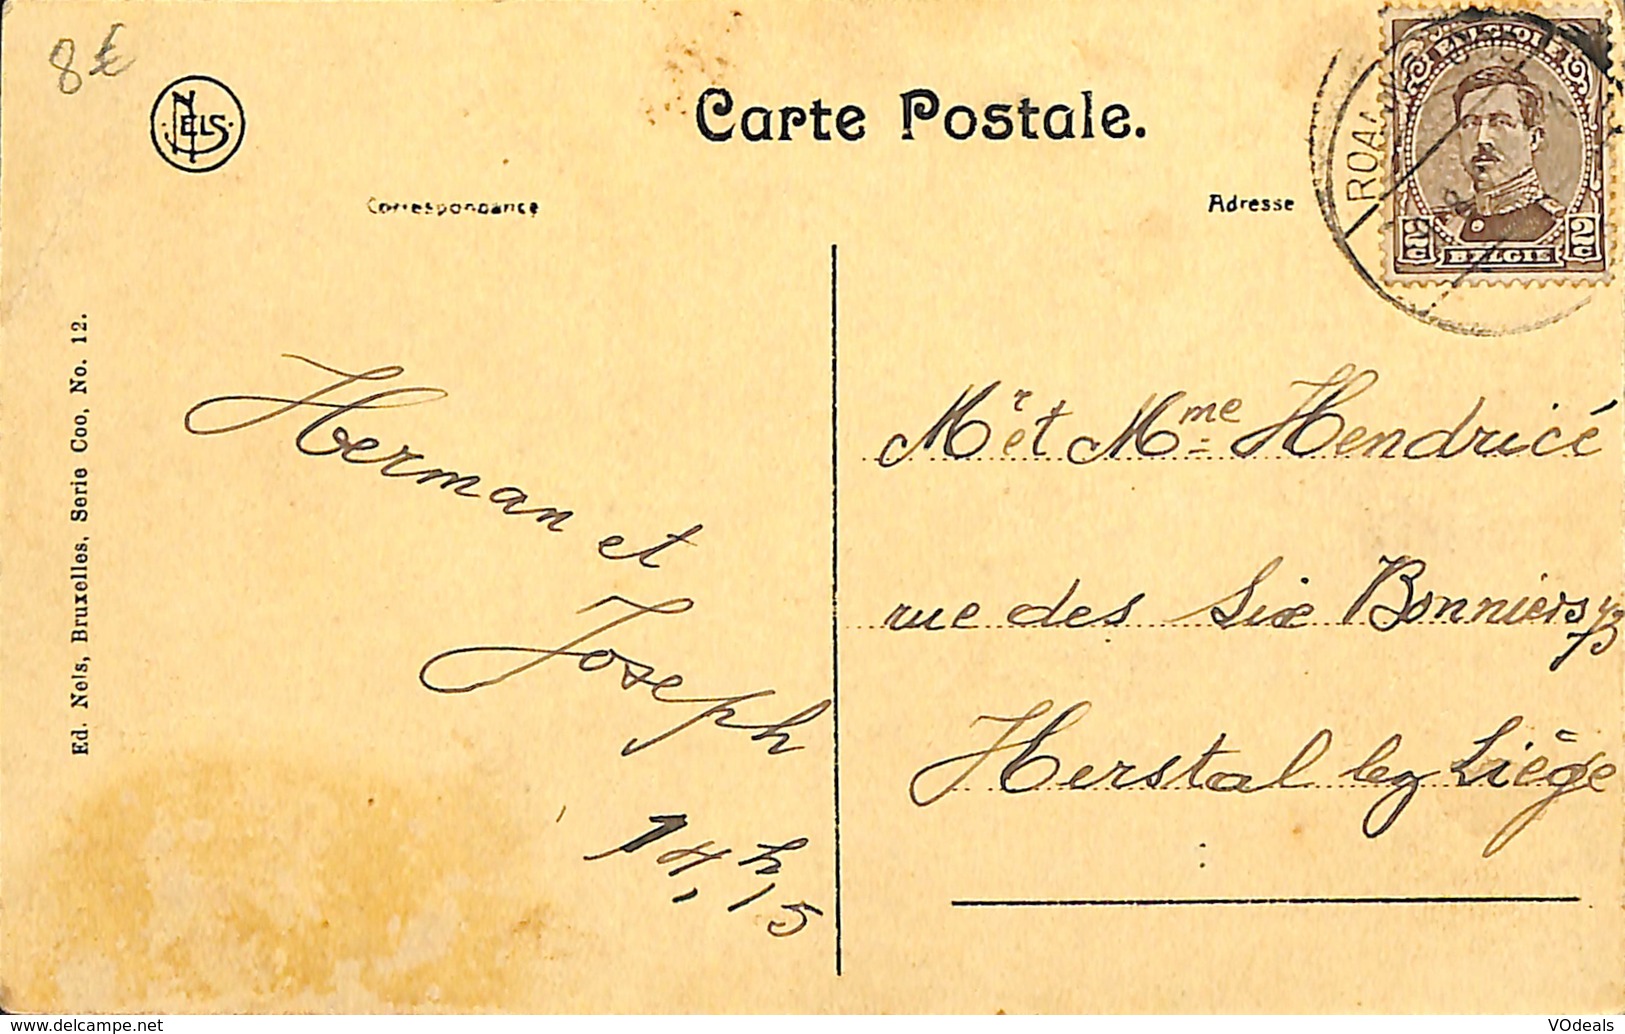 8€
NELS
Carte Postale.
Correspondance
Adresse
BELGIQUE
2c 2c
BELGIË
ROA
Ed. Nels, Bruxelles, Serie Coo, No. 12.
Herman et
Joseph
14, h 15
Mr et Mme Hendricé
rue des Six Bonniers
Herstal lez Liège
www.delcampe.net
VOdeals